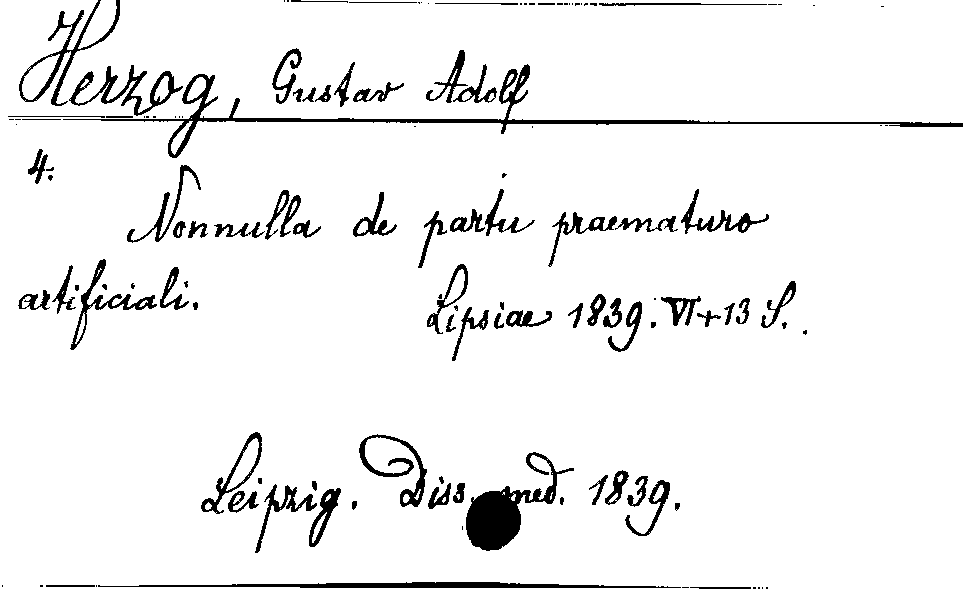 Herzog, Gustav Adolf
4.
Nonnulla de partu praematuro
artificiali.
Lipsiae 1839. VI+13 S.
Leipzig. Diss. med. 1839.